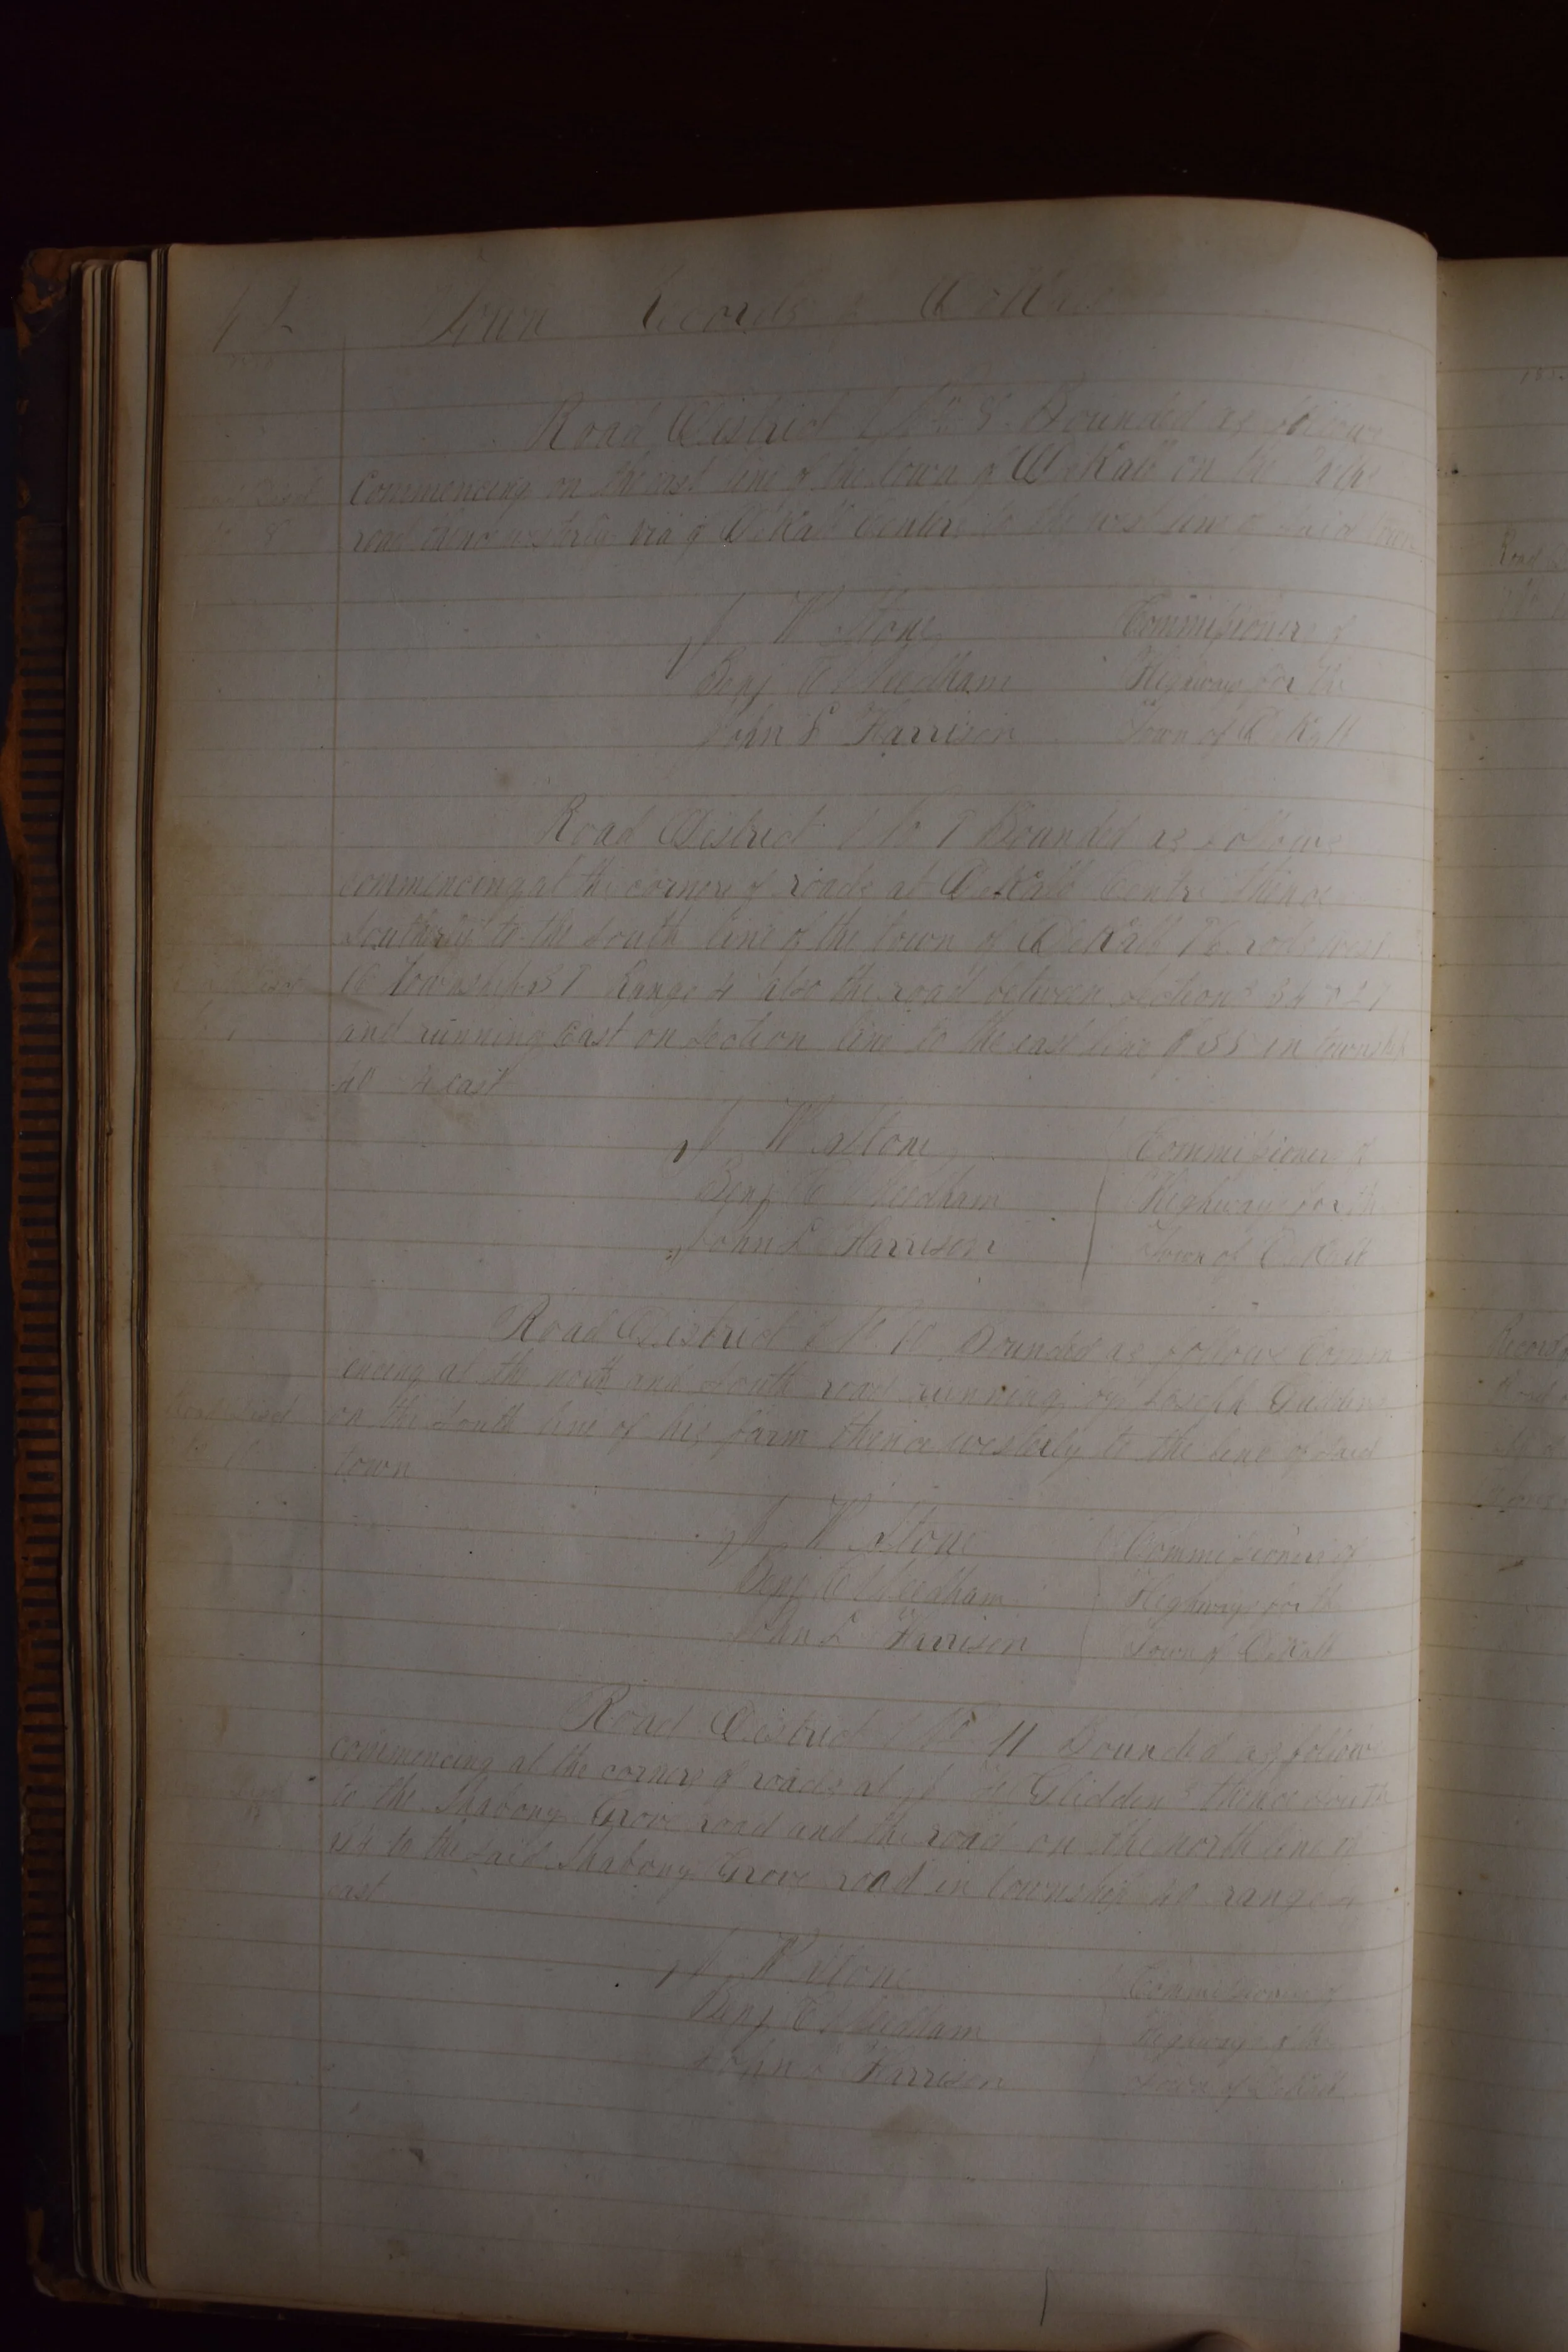 Town Records of DeKalb
Road District No 8. Bounded as follows
Commencing on the east line of the town of DeKalb on the
road thence westerly via of DeKalb Centre to the west line of said town
J W Stone Commissioners of
Benj C Needham Highways for the
John L Harrison Town of DeKalb
Road District No 9 Bounded as follows
commencing at the corners of roads at DeKalb Centre thence
Southerly to the South line of the town of DeKalb rods west
township 39 Range 4 also the road between sections 34
and running East on section line to the east line of 35 in township
40 4 east
J W Stone Commissioners of
Benj C Needham Highways for the
John L Harrison Town of DeKalb
Road District No 10 Bounded as follows Comm
encing at the north and South road running by Joseph
on the South line of his farm thence westerly to the line of said
town
J W Stone Commissioners of
Benj C Needham Highways for the
John L Harrison Town of DeKalb
Road District No 11 Bounded as follows
commencing at the corners of roads at Gliddens thence south
to the Shabony Grove road and the road on the north line of
to the said Shabony Grove road in township 40 range 4
east
J W Stone Commissioners of
Benj C Needham Highways for the
John L Harrison Town of DeKalb